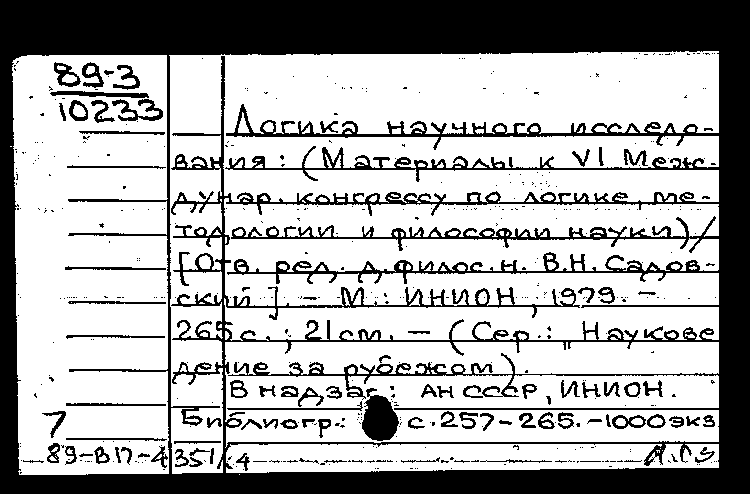 89-3
10233
Логика научного исследо-
вания: (Материалы к VI Меж-
дунар. конгрессу по логике, ме-
тодологии и философии науки)/
[Отв. ред. д.филос.н. В.Н. Садов-
ский]. - М.: ИНИОН, 1979. -
265 с.; 21 см. - (Сер.: „Наукове
дение за рубежом).
В надзаг.: АН СССР, ИНИОН.
7 Библиогр.: с. 257-265. - 1000 экз
89-В17-4351/4